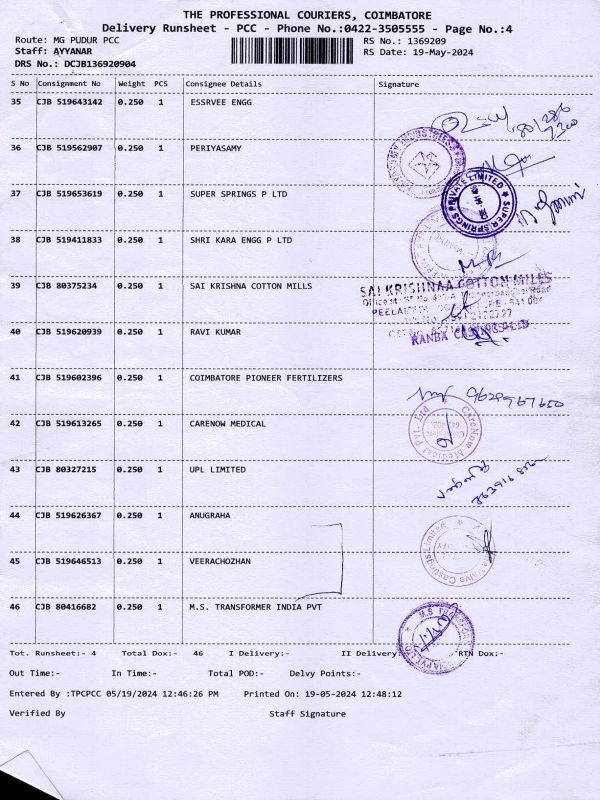 THE PROFESSIONAL COURIERS, COIMBATORE
Delivery Runsheet - PCC - Phone No.:0422-3505555 - Page No.:4
Route: MG PUDUR PCC RS No.: 1369209
Staff: AYYANAR RS Date: 19-May-2024
DRS No.: DCJB136920904
S No Consignment No Weight PCS Consignee Details Signature
35 CJB 519643142 0.250 1 ESSRVEE ENGG
36 CJB 519562907 0.250 1 PERIYASAMY
37 CJB 519653619 0.250 1 SUPER SPRINGS P LTD
SUPER SPRINGS PRIVATE LIMITED
38 CJB 519411833 0.250 1 SHRI KARA ENGG P LTD
39 CJB 80375234 0.250 1 SAI KRISHNA COTTON MILLS
SAI KRISHNAA COTTON MILLS
40 CJB 519620939 0.250 1 RAVI KUMAR
41 CJB 519602396 0.250 1 COIMBATORE PIONEER FERTILIZERS
42 CJB 519613265 0.250 1 CARENOW MEDICAL
CareNow Medical Pvt. Ltd
43 CJB 80327215 0.250 1 UPL LIMITED
44 CJB 519626367 0.250 1 ANUGRAHA
45 CJB 519646513 0.250 1 VEERACHOZHAN
46 CJB 80416682 0.250 1 M.S. TRANSFORMER INDIA PVT
Tot. Runsheet:- 4 Total Dox:- 46 I Delivery:- II Delivery:- RTN Dox:-
Out Time:- In Time:- Total POD:- Delvy Points:-
Entered By :TPCPCC 05/19/2024 12:46:26 PM Printed On: 19-05-2024 12:48:12
Verified By Staff Signature